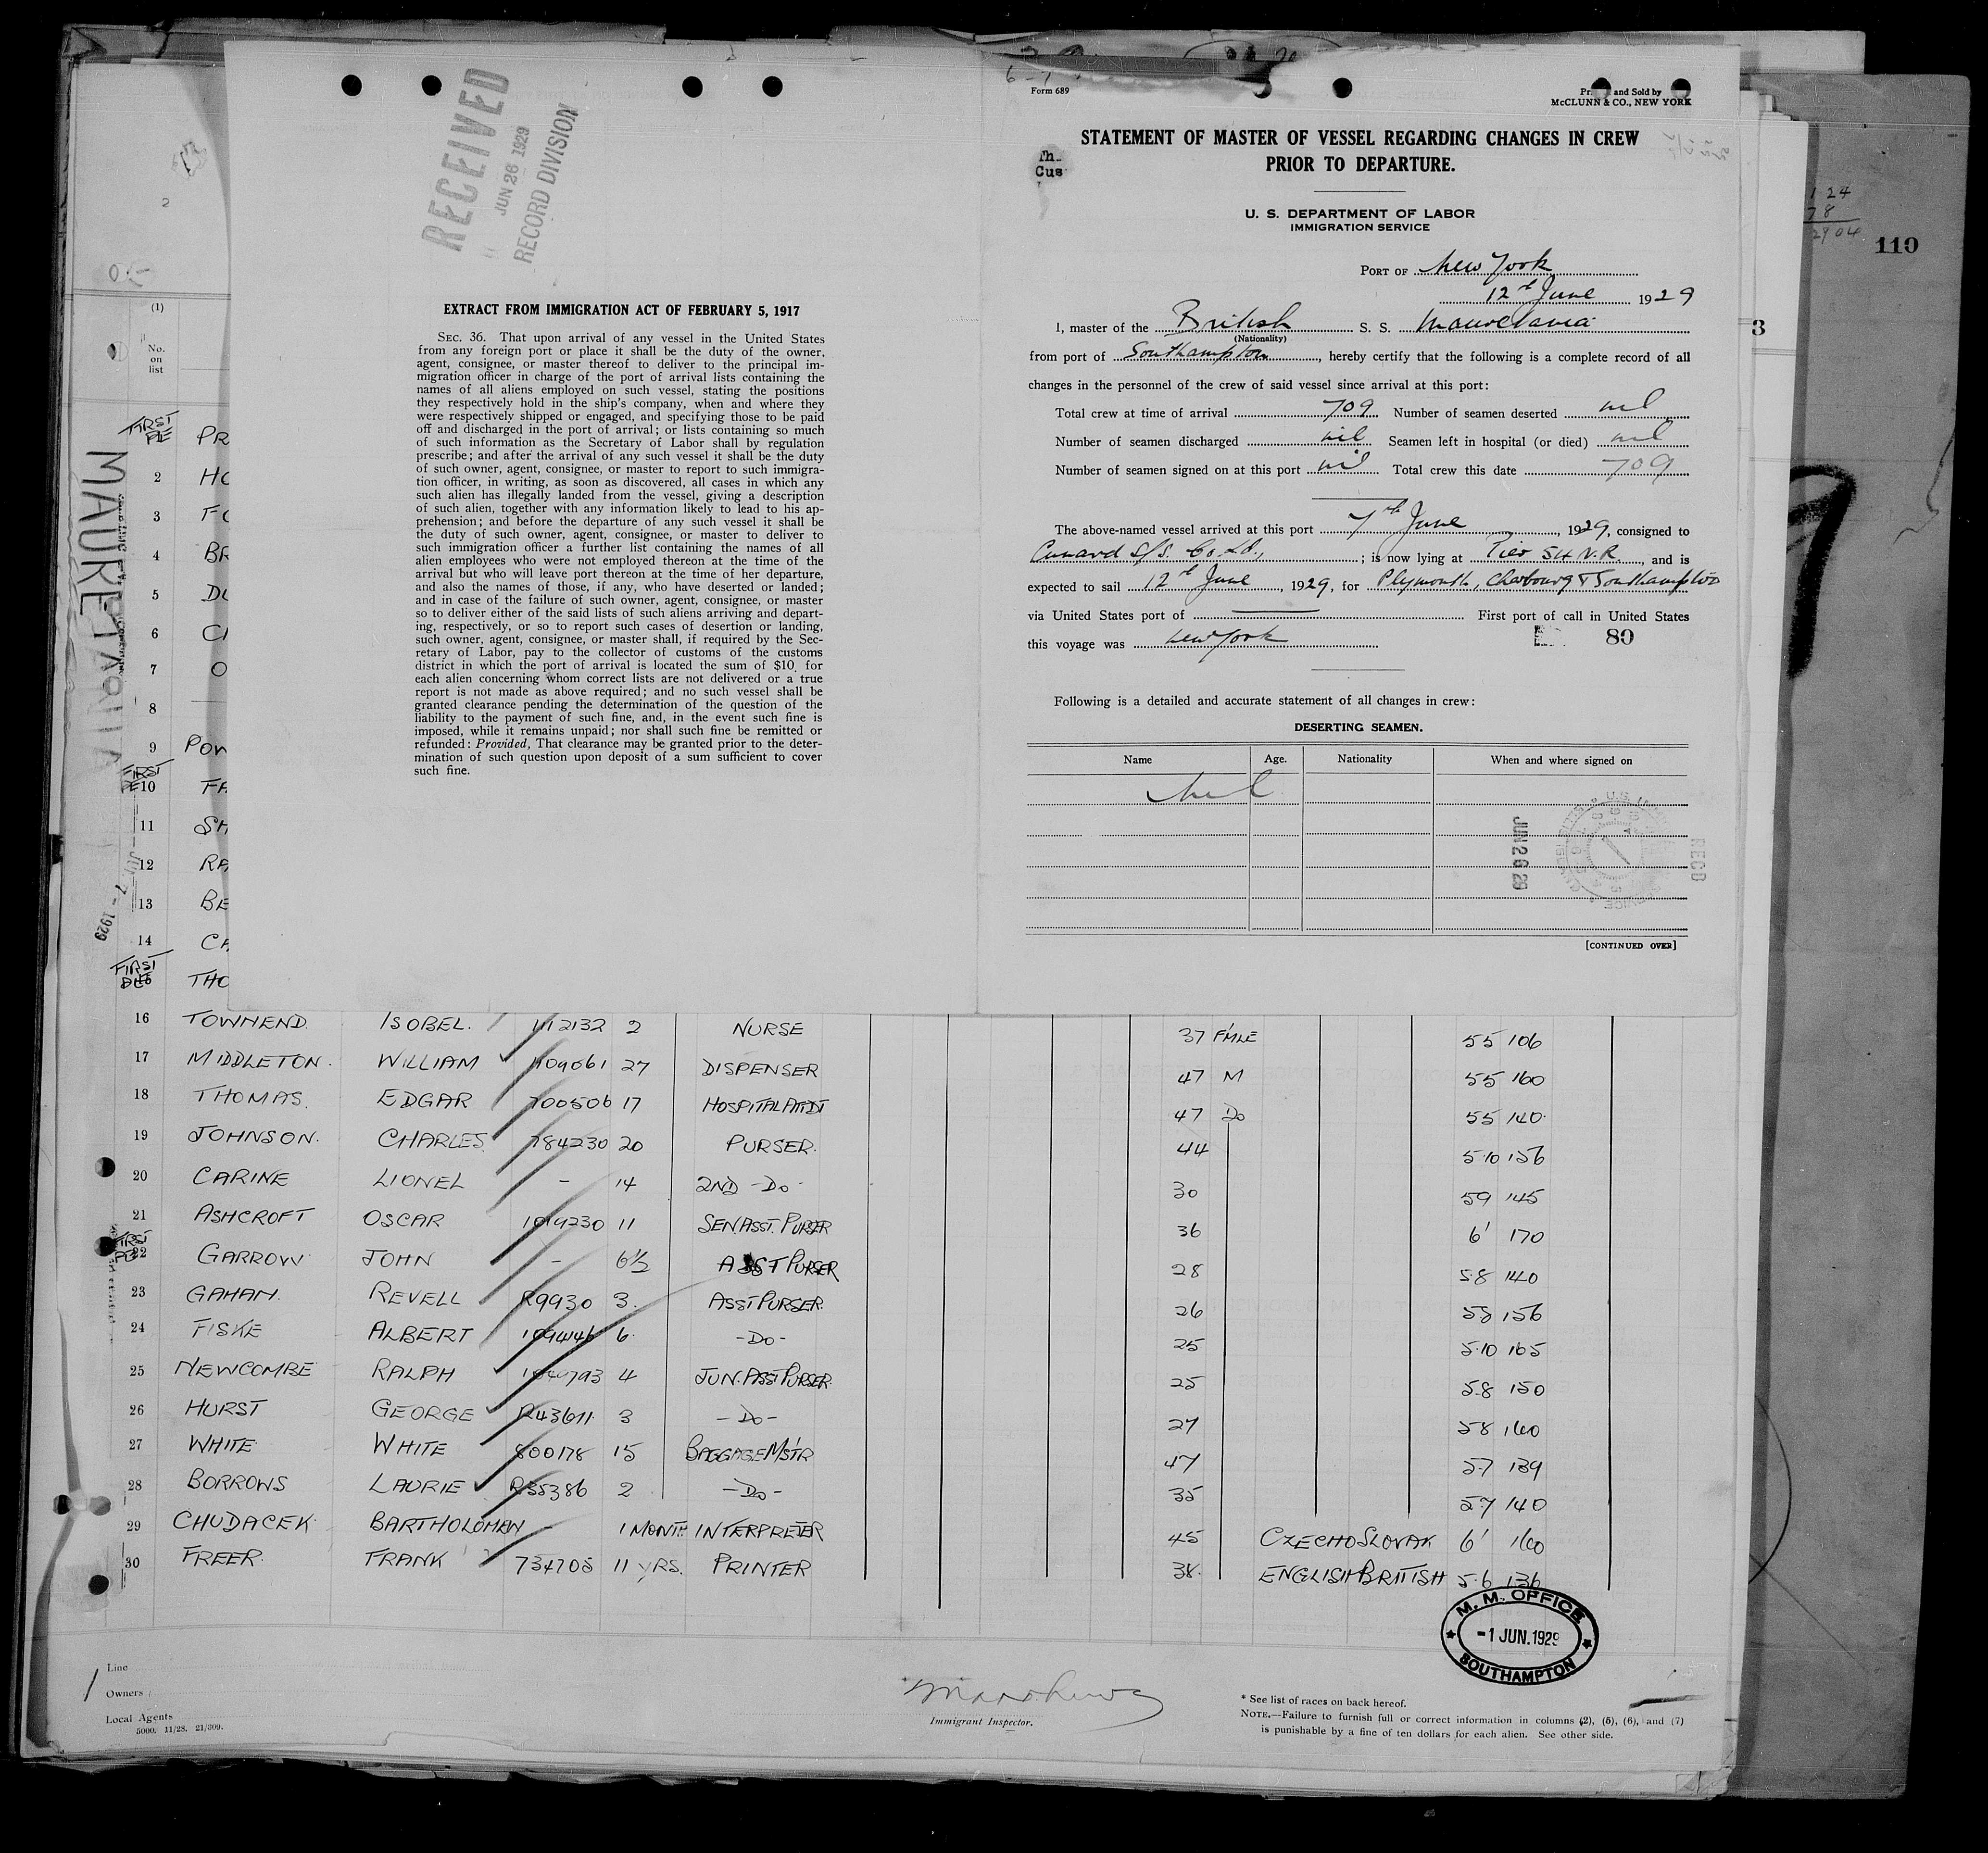 RECEIVED
JUN 26 1929
RECORD DIVISION
EXTRACT FROM IMMIGRATION ACT OF FEBRUARY 5, 1917
SEC. 36. That upon arrival of any vessel in the United States
from any foreign port or place it shall be the duty of the owner,
agent, consignee, or master thereof to deliver to the principal im-
migration officer in charge of the port of arrival lists containing the
names of all aliens employed on such vessel, stating the positions
they respectively hold in the ship's company, when and where they
were respectively shipped or engaged, and specifying those to be paid
off and discharged in the port of arrival; or lists containing so much
of such information as the Secretary of Labor shall by regulation
prescribe; and after the arrival of any such vessel it shall be the duty
of such owner, agent, consignee, or master to report to such immigra-
tion officer, in writing, as soon as discovered, all cases in which any
such alien has illegally landed from the vessel, giving a description
of such alien, together with any information likely to lead to his ap-
prehension; and before the departure of any such vessel it shall be
the duty of such owner, agent, consignee, or master to deliver to
such immigration officer a further list containing the names of all
alien employees who were not employed thereon at the time of the
arrival but who will leave port thereon at the time of her departure,
and also the names of those, if any, who have deserted or landed;
and in case of the failure of such owner, agent, consignee, or master
so to deliver either of the said lists of such aliens arriving and depart-
ing, respectively, or so to report such cases of desertion or landing,
such owner, agent, consignee, or master shall, if required by the Sec-
retary of Labor, pay to the collector of customs of the customs
district in which the port of arrival is located the sum of $10 for
each alien concerning whom correct lists are not delivered or a true
report is not made as above required; and no such vessel shall be
granted clearance pending the determination of the question of the
liability to the payment of such fine, and, in the event such fine is
imposed, while it remains unpaid; nor shall such fine be remitted or
refunded: Provided, That clearance may be granted prior to the deter-
mination of such question upon deposit of a sum sufficient to cover
such fine.
Form 689
and Sold by
McCLUNN & CO., NEW YORK
STATEMENT OF MASTER OF VESSEL REGARDING CHANGES IN CREW
PRIOR TO DEPARTURE.
U. S. DEPARTMENT OF LABOR
IMMIGRATION SERVICE
PORT OF New York
12th June 1929
I, master of the British S. S. Mauretania
(Nationality)
from port of Southampton, hereby certify that the following is a complete record of all
changes in the personnel of the crew of said vessel since arrival at this port:
Total crew at time of arrival 709 Number of seamen deserted nil
Number of seamen discharged nil Seamen left in hospital (or died) nil
Number of seamen signed on at this port nil Total crew this date 709
The above-named vessel arrived at this port 7th June, 1929, consigned to
Cunard S/S. Co. Ld., ; is now lying at Pier 54 N.R., and is
expected to sail 12th June, 1929, for Plymouth, Cherbourg & Southampton
via United States port of First port of call in United States
this voyage was New York
80
Following is a detailed and accurate statement of all changes in crew:
DESERTING SEAMEN.
Name Age. Nationality When and where signed on
Nil
JUN 26 29
RECD
[CONTINUED OVER]
110
3
MAURETANIA
JUN 7 - 1929
(1)
No.
on
list
FIRST
PR
2 HO
3 FO
4 BR
5 DU
6 CI
7 O
8
9 POW
FIRST
10 FA
11 SH
12 RA
13 BE
14 CA
FIRST
THO
16 TOWNEND. ISOBEL. 1112132 2 NURSE 37 F'MLE 55 106
17 MIDDLETON. WILLIAM 1109061 27 DISPENSER 47 M 55 160
18 THOMAS. EDGAR 700506 17 HOSPITAL ATTDT 47 DO 55 140
19 JOHNSON. CHARLES 784230 20 PURSER. 44 5·10 156
20 CARINE LIONEL - 14 2ND -DO- 30 59 145
21 ASHCROFT OSCAR 1019230 11 SEN.ASST. PURSER 36 6' 170
FIRST
22 GARROW JOHN - 6½ ASST PURSER 28 5·8 140
23 GAHAN. REVELL R9930 3. ASST PURSER. 26 58 156
24 FISKE ALBERT 6 -DO- 25 5·10 165
25 NEWCOMBE RALPH 4 JUN.ASST PURSER 25 5·8 150
26 HURST GEORGE R43611 3 -DO- 27 58 160
27 WHITE WHITE 800178 15 BAGGAGE M'STR 47 5·7 139
28 BORROWS LAURIE R35386 2 -DO- 35 5·7 140
29 CHUDACEK BARTHOLOMEW - 1 MONTH INTERPRETER 45 CZECHOSLOVAK 6' 160
30 FREER. FRANK 734705 11 YRS. PRINTER 38. ENGLISH BRITISH 5·6 136
M. M. OFFICE
-1 JUN. 1929
SOUTHAMPTON
Line
Owners
Local Agents
5000. 11/28. 21/309.
Immigrant Inspector.
* See list of races on back hereof.
NOTE.—Failure to furnish full or correct information in columns (2), (5), (6), and (7)
is punishable by a fine of ten dollars for each alien. See other side.